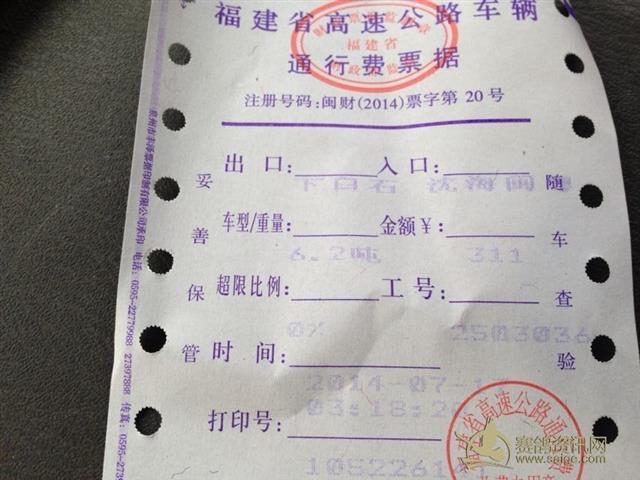 福建省高速公路车辆
通行费票据
福建省
注册号码:闽财(2014)票字第 20号
出 口: 入 口:
下白石 沈海闽
车型/重量: 金额￥:
6.2吨 311
超限比例: 工号:
0% 2503036
时 间:
2014-07-1
03:18:2
打印号:
105226141
妥善保管
随车查验
泉州市丰泽票据印制有限公司承印 电话:0595-22779988 27397888 传真:0595-2739
省高速公路通
赛鸽资讯网
www.saige.com